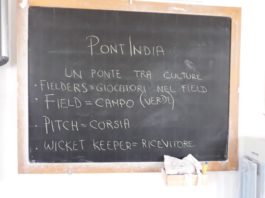 PONTINDIA
UN PONTE TRA CULTURE
• FIELDERS=GIOCATORI NEL FIELD
• FIELD=CAMPO (VERDE)
• PITCH=CORSIA
• WICKET KEEPER=RICEVITORE